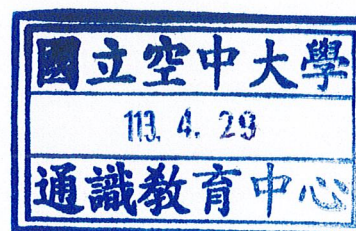 國立空中大學
113. 4. 29
通識教育中心